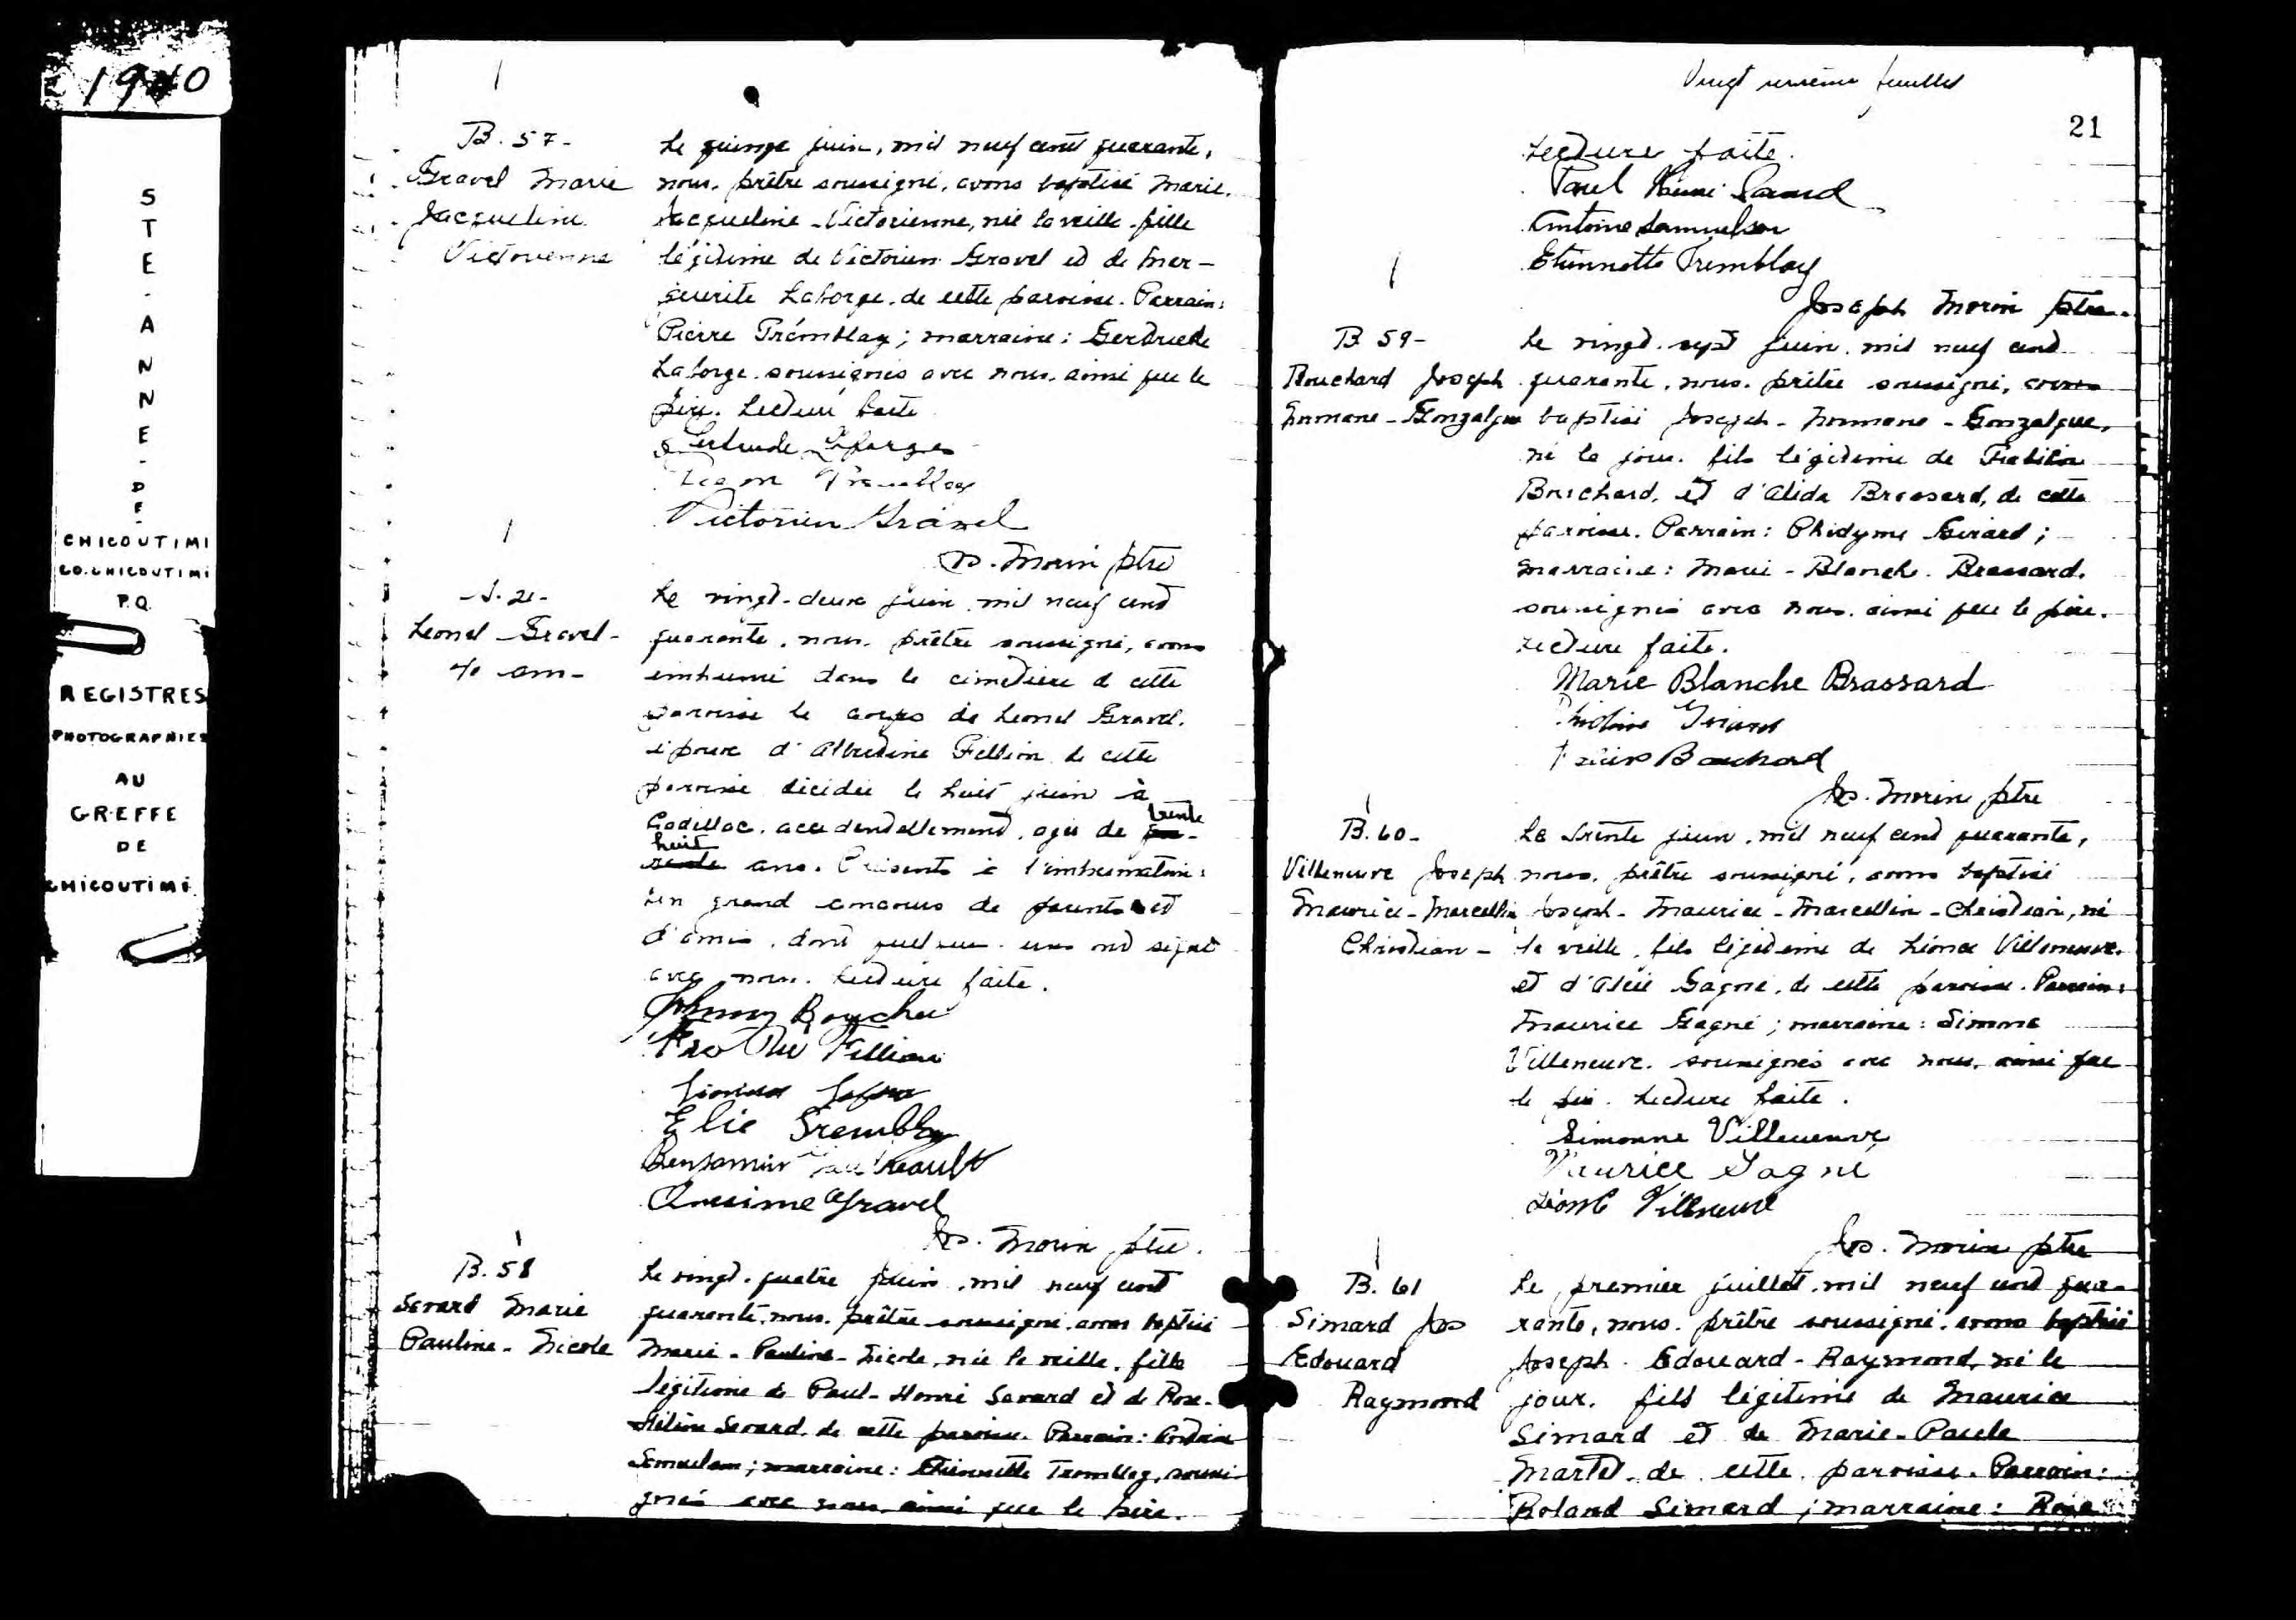 1940
STE-ANNE-DE-
CHICOUTIMI
CO. CHICOUTIMI
P.Q.
REGISTRES
PHOTOGRAPHIES
AU
GREFFE
DE
CHICOUTIMI
B. 57-
Gravel Marie
Jacqueline
Victorienne
Le quinze juin, mil neuf cent quarante,
nous, prêtre soussigné, avons baptisé Marie-
Jacqueline-Victorienne, née la veille, fille
légitime de Victorien Gravel et de Mar-
guerite Laforge, de cette paroisse. Parrain:
Pierre Tremblay; marraine: Gertrude
Laforge, soussignés avec nous, ainsi que le
père. Lecture faite
Gertrude Laforge
Tremblay
Victorien Gravel
Jos. Morin ptre
S. 21-
Leonel Gravel-
40 ans-
Le vingt-deux juin, mil neuf cent
quarante, nous, prêtre soussigné, avons
inhumé dans le cimetière de cette
paroisse le corps de Leonel Gravel,
époux d'Albertine Fillion de cette
paroisse décédé le huit juin à
Cadillac, accidentellement, agé de trente
huit ans. Présents à l'inhumation:
Un grand concours de parents et
d'amis, dont quelques-uns ont signé
avec nous. Lecture faite.
Johnny Boucher
Fillion
Elie Tremblay
Benjamin
Onesime Gravel
Jos. Morin ptre.
B. 58
Savard Marie
Pauline-Nicole
Le vingt-quatre juin, mil neuf cent
quarante, nous, prêtre soussigné, avons baptisé
Marie-Pauline-Nicole, née la veille, fille
légitime de Paul-Henri Savard et de Rose-
Hélène Savard, de cette paroisse. Parrain: Antoine
Samuelson; marraine: Etiennette Tremblay, soussi-
gnés avec nous, ainsi que le père.
Vingt unième feuillet
21
Lecture faite.
Paul Henri Savard
Antoine Samuelson
Etiennette Tremblay
Joseph Morin ptre
B 59-
Bouchard Joseph
Hormone-Gonzalgue
Le vingt-sept juin, mil neuf cent
quarante, nous, prêtre soussigné, avons
baptisé Joseph-Gonzalgue,
né le jour, fils légitime de
Bouchard, et d'Alida Brassard, de cette
paroisse. Parrain: Phidyme Girard;
marraine: Marie-Blanche Brassard,
soussignés avec nous, ainsi que le père.
Lecture faite.
Marie Blanche Brassard
Girard
Bouchard
Jos. Morin ptre
B. 60-
Villeneuve Joseph
Maurice-Marcellin
Christian-
Le trente juin, mil neuf cent quarante,
nous, prêtre soussigné, avons baptisé
Joseph-Maurice-Marcellin-Christian, né
la veille, fils légitime de Léonce Villeneuve
et d'Alice Gagné, de cette paroisse. Parrain:
Maurice Gagné; marraine: Simone
Villeneuve, soussignés avec nous, ainsi que
le père. Lecture faite.
Simonne Villeneuve
Maurice Gagné
Léonce Villeneuve
Jos. Morin ptre
B. 61
Simard Jos
Edouard
Raymond
Le premier juillet, mil neuf cent qua-
rante, nous, prêtre soussigné, avons baptisé
Joseph-Edouard-Raymond, né le
jour, fils légitime de Maurice
Simard et de Marie-Paule
Martel, de cette paroisse. Parrain:
Roland Simard; marraine: Rose